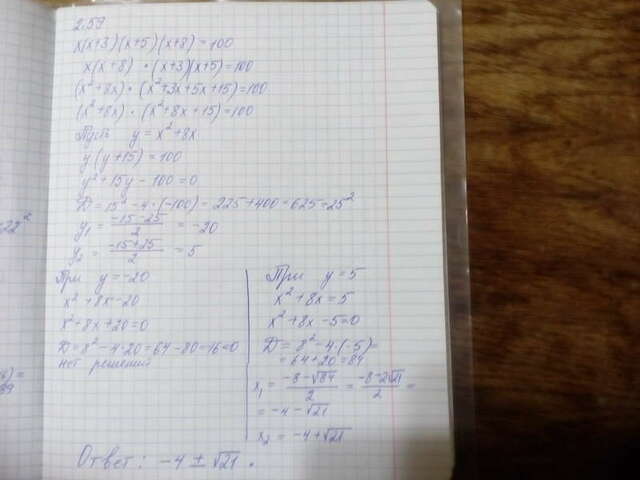 2.59
x(x+3)(x+5)(x+8)=100
x(x+8)·(x+3)(x+5)=100
(x²+8x)·(x²+3x+5x+15)=100
(x²+8x)·(x²+8x+15)=100
Пусть y=x²+8x
y(y+15)=100
y²+15y-100=0
D=15²-4·(-100)=225+400=625=25²
y₁=(-15-25)/2=-20
y₂=(-15+25)/2=5
При y=-20
x²+8x-20
x²+8x+20=0
D=8²-4·20=64-80=-16<0
нет решений
При y=5
x²+8x=5
x²+8x-5=0
D=8²-4·(-5)=
=64+20=84
x₁=(-8-√84)/2=(-8-2√21)/2=
=-4-√21
x₂=-4+√21
Ответ: -4±√21.
22²